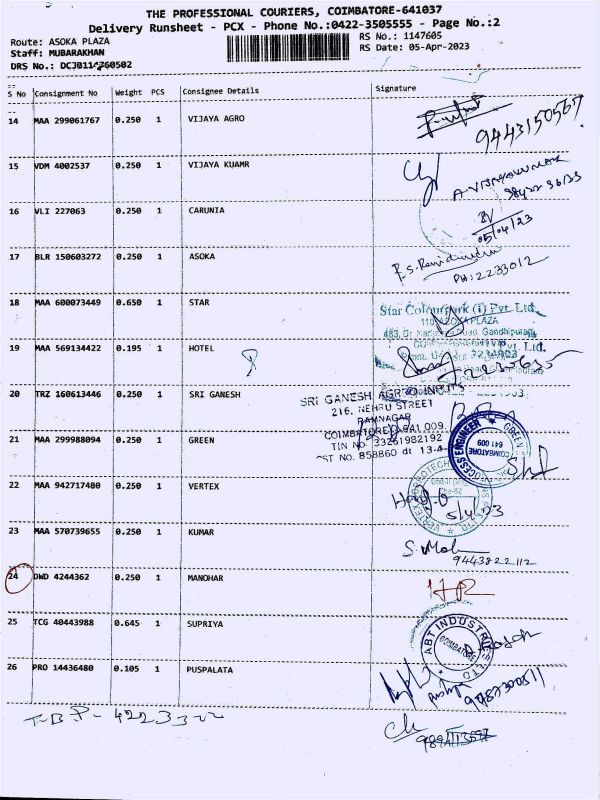 THE PROFESSIONAL COURIERS, COIMBATORE-641037
Delivery Runsheet - PCX - Phone No.:0422-3505555 - Page No.:2
Route: ASOKA PLAZA
RS No.: 1147605
Staff: MUBARAKHAN
RS Date: 05-Apr-2023
DRS No.: DCJB114760502
S No Consignment No Weight PCS Consignee Details Signature
14 MAA 299061767 0.250 1 VIJAYA AGRO
9443150567
15 VDM 4002537 0.250 1 VIJAYA KUAMR
A. VIJAYAKUMAR
16 VLI 227063 0.250 1 CARUNIA
05/04/23
17 BLR 150603272 0.250 1 ASOKA
PH: 2233012
18 MAA 600073449 0.650 1 STAR
Star Colourpark (I) Pvt. Ltd.
PLAZA
Gandhipuram
19 MAA 569134422 0.195 1 HOTEL
Pvt. Ltd.
2230635
20 TRZ 160613446 0.250 1 SRI GANESH
SRI GANESH AGRRO INPUTS
216, NEHRU STREET
RAMNAGAR
COIMBATORE 641 009.
TIN No. 33261982192
CST NO. 858860 dt 13-4
21 MAA 299988094 0.250 1 GREEN
GREEN PROCESS ENGINEER
COIMBATORE
641 009
22 MAA 942717480 0.250 1 VERTEX
5/4/23
23 MAA 570739655 0.250 1 KUMAR
9443822112
24 DWD 4244362 0.250 1 MANOHAR
25 TCG 40443988 0.645 1 SUPRIYA
ABT INDUSTRIES LTD
COIMBATORE
26 PRO 14436480 0.105 1 PUSPALATA
T.B.P - 4223322